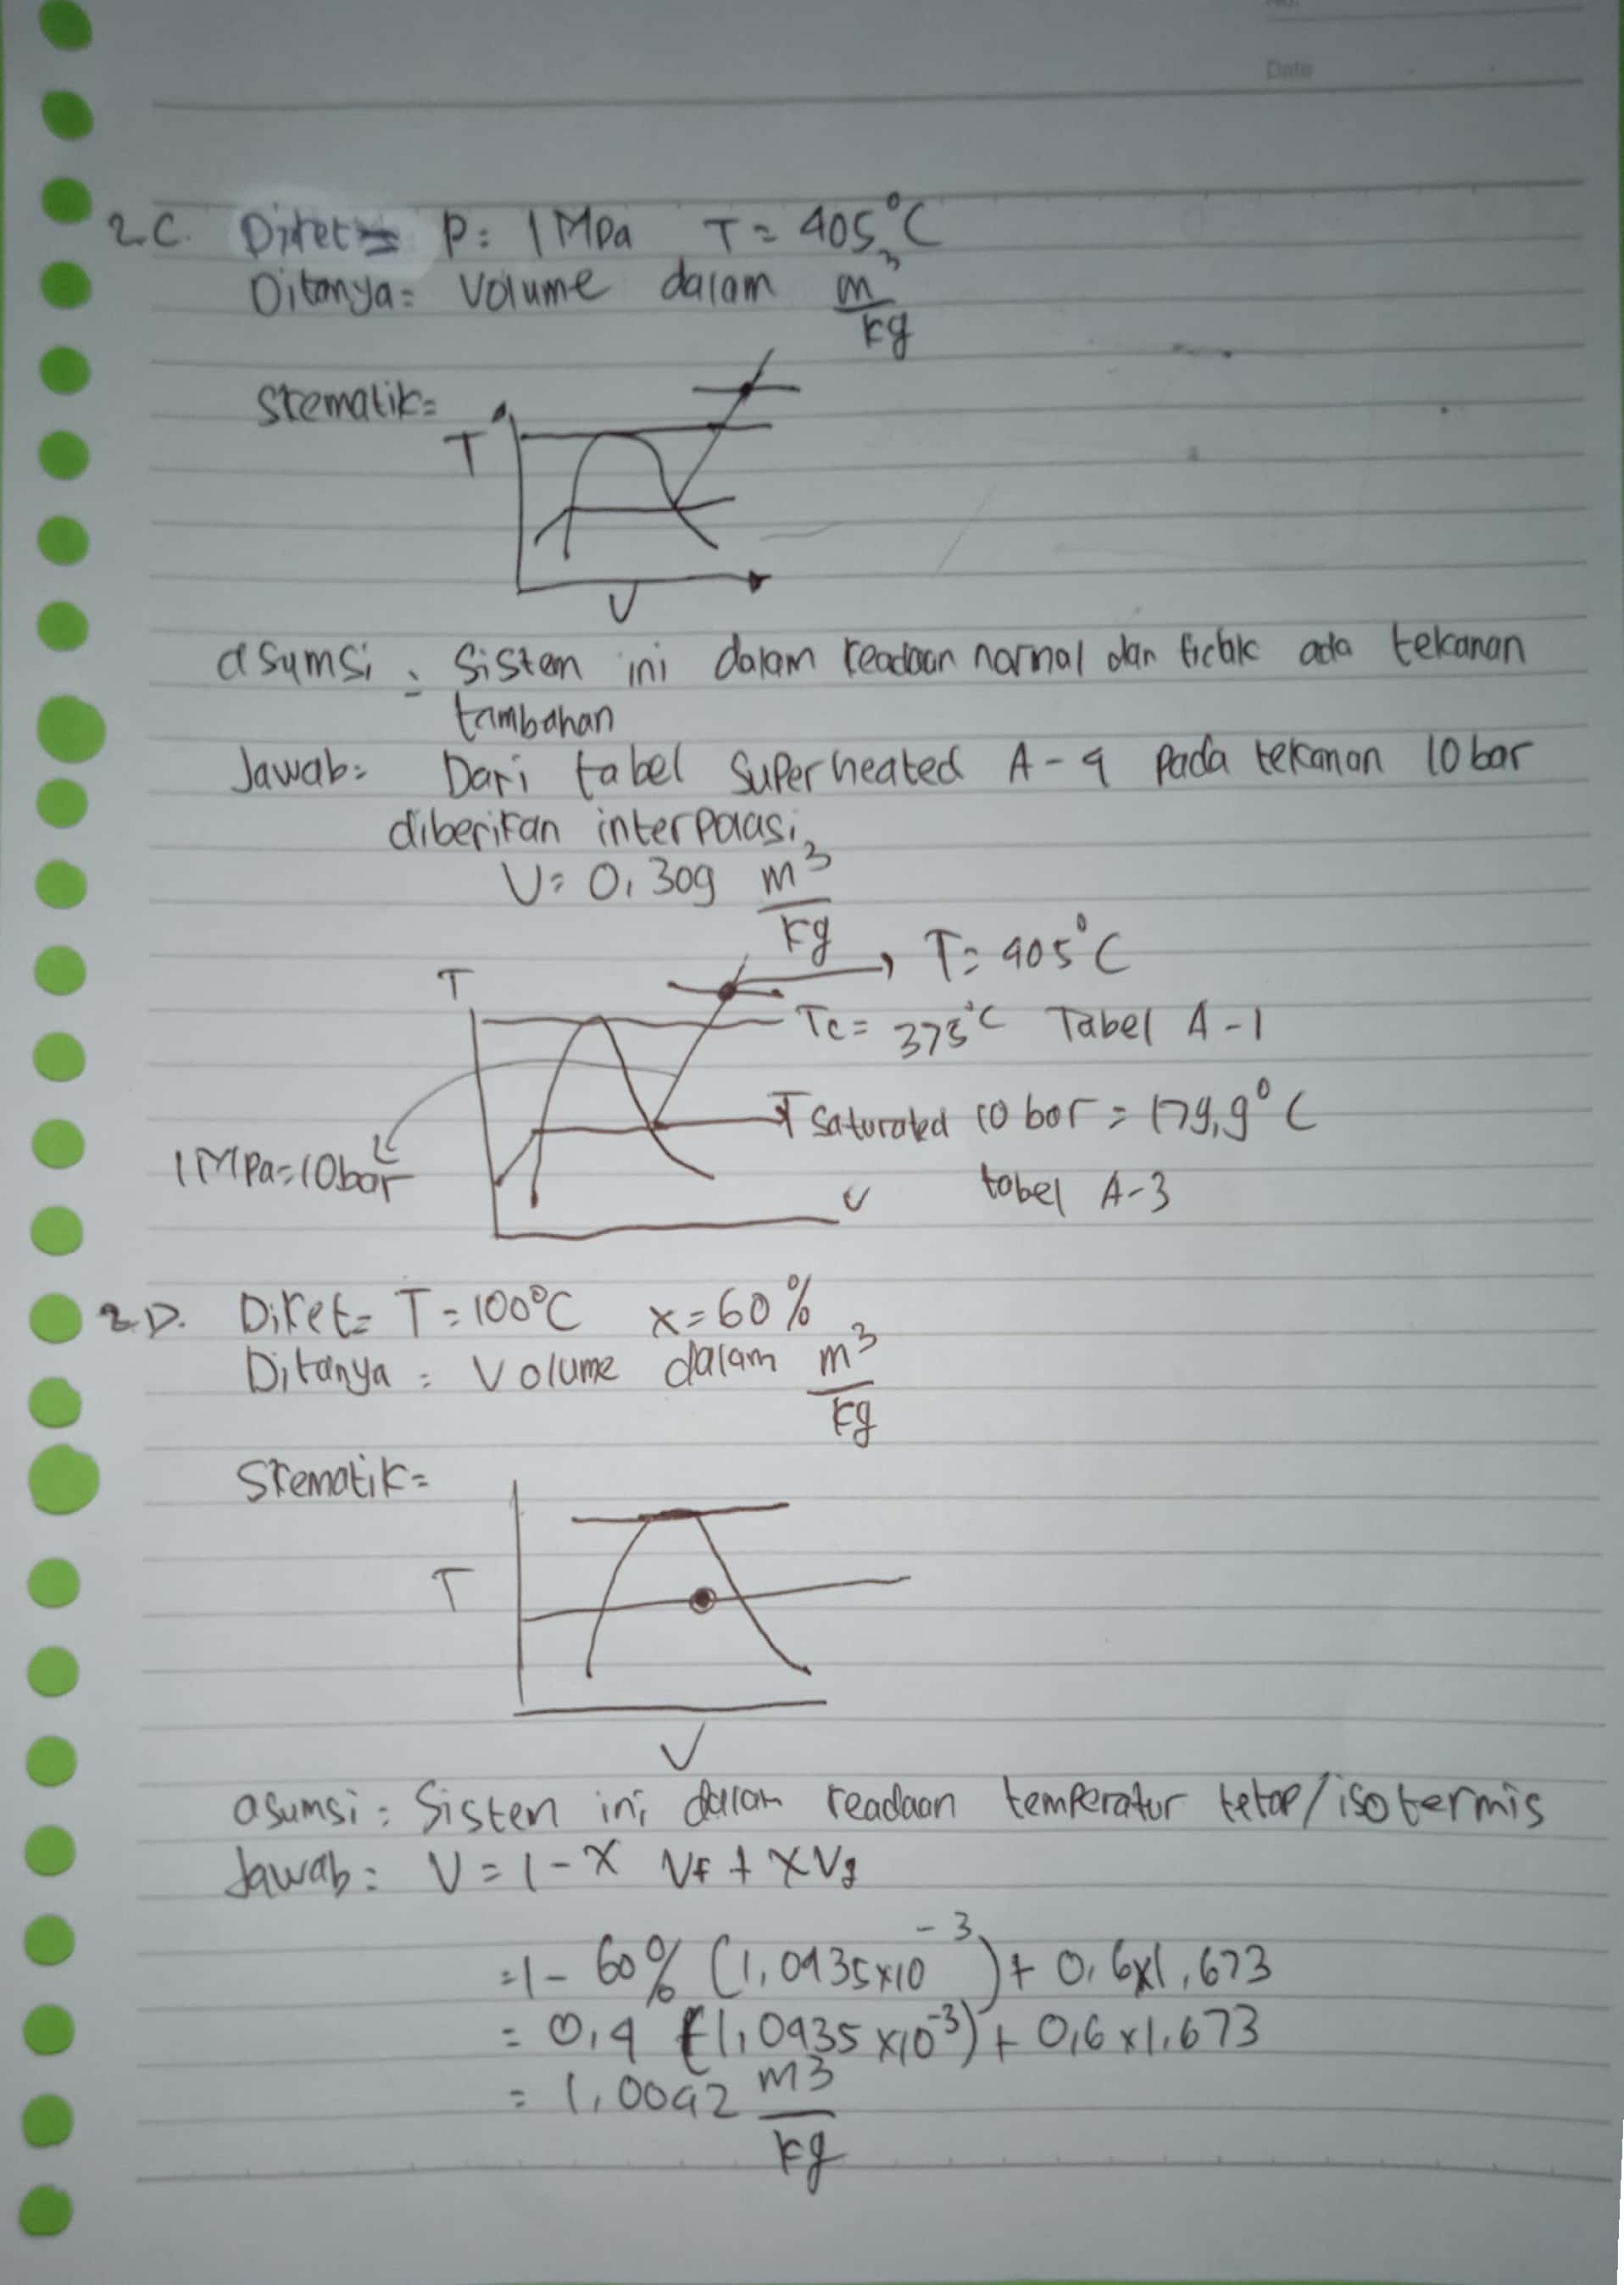 No.
Date
2.C. Diket= P: 1 MPa T= 405°C
Ditanya= Volume dalam m³/kg
Skematik=
T
V
asumsi = Sistem ini dalam keadaan normal dan tidak ada tekanan
tambahan
Jawab= Dari tabel Superheated A-4 Pada tekanan 10 bar
diberikan interpolasi
V= 0,309 m³/kg
T= 405°C
T
Tc= 375°C Tabel A-1
T Saturated 10 bar = 179,9°C
1 MPa=10bar
V
tabel A-3
2.D. Diket= T=100°C x=60%
Ditanya = Volume dalam m³/kg
Skematik=
T
V
asumsi = Sistem ini dalam keadaan temperatur tetap/isotermis
Jawab= V = 1-X Vf + XVg
=1- 60% (1,0435x10⁻³)+ 0,6x1,673
= 0,4 (1,0435 x10⁻³)+ 0,6 x1,673
= 1,0042 m3/kg